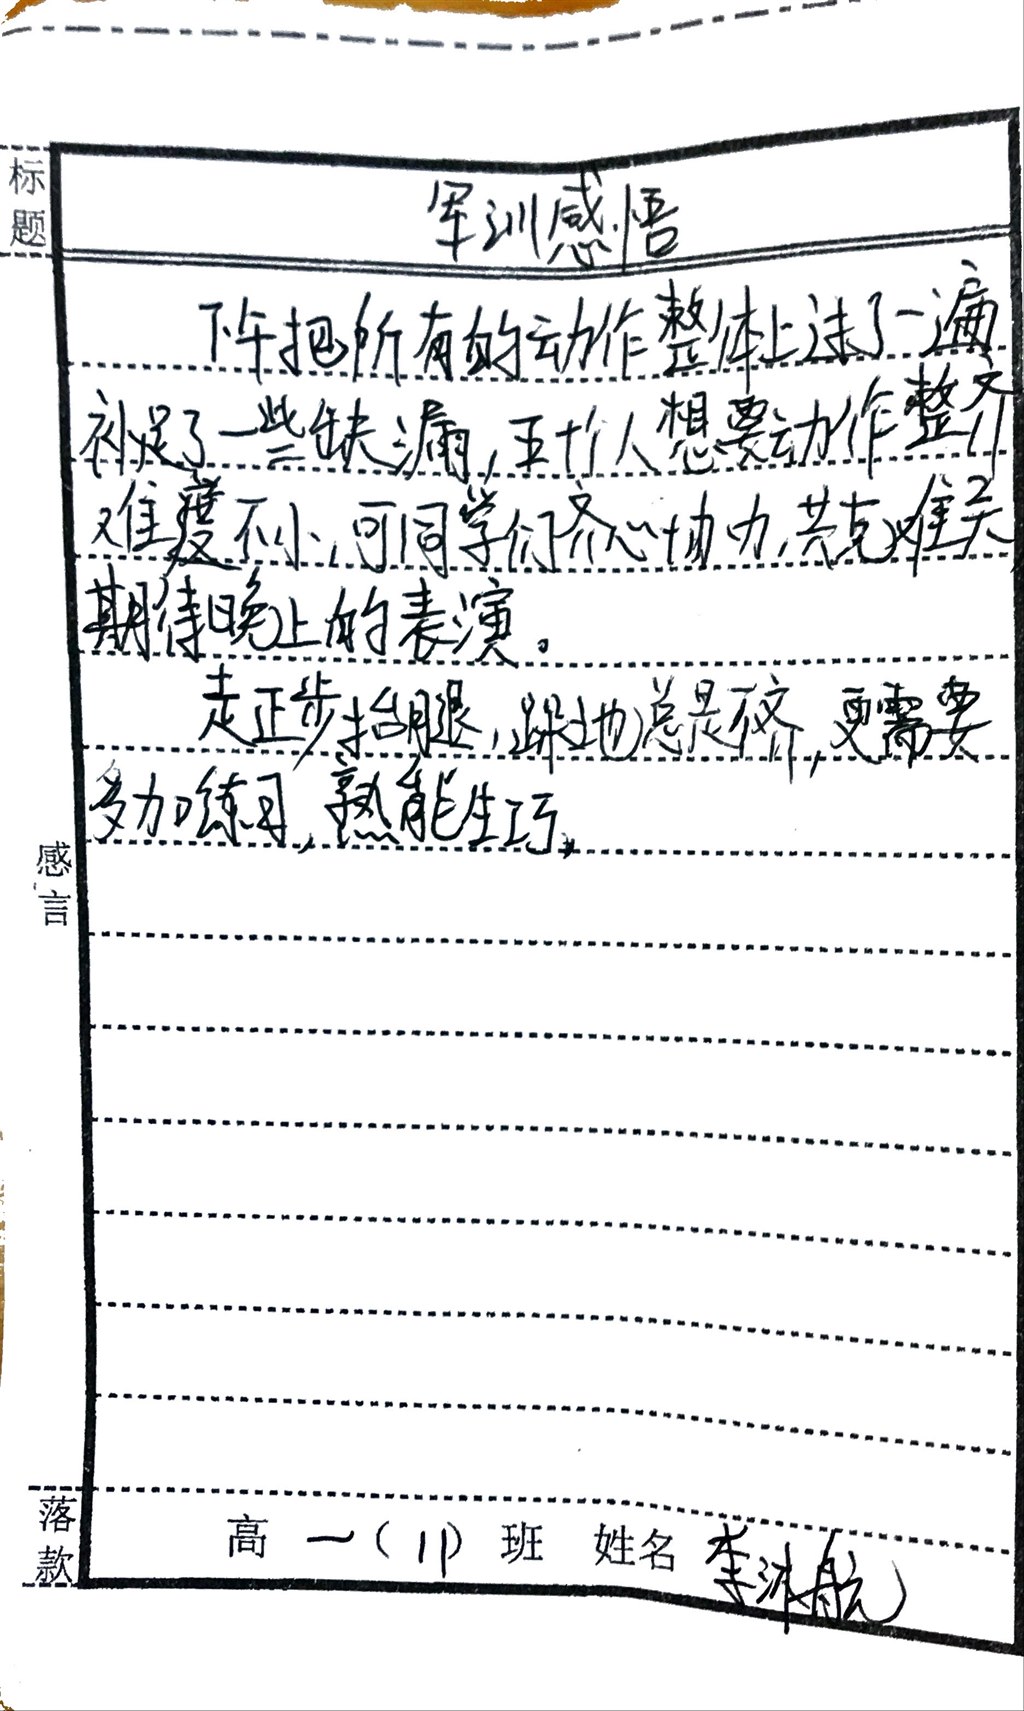 标题
军训感悟
下午把所有的动作整体上走了一遍
补足了一些缺漏,五十个人想要动作整齐
难度不小,可同学们齐心协力,共克难关
期待晚上的表演。
走正步抬腿,踩地总是不齐,更需要
多加练习,熟能生巧。
感言
落款
高一(11)班 姓名 李沐航